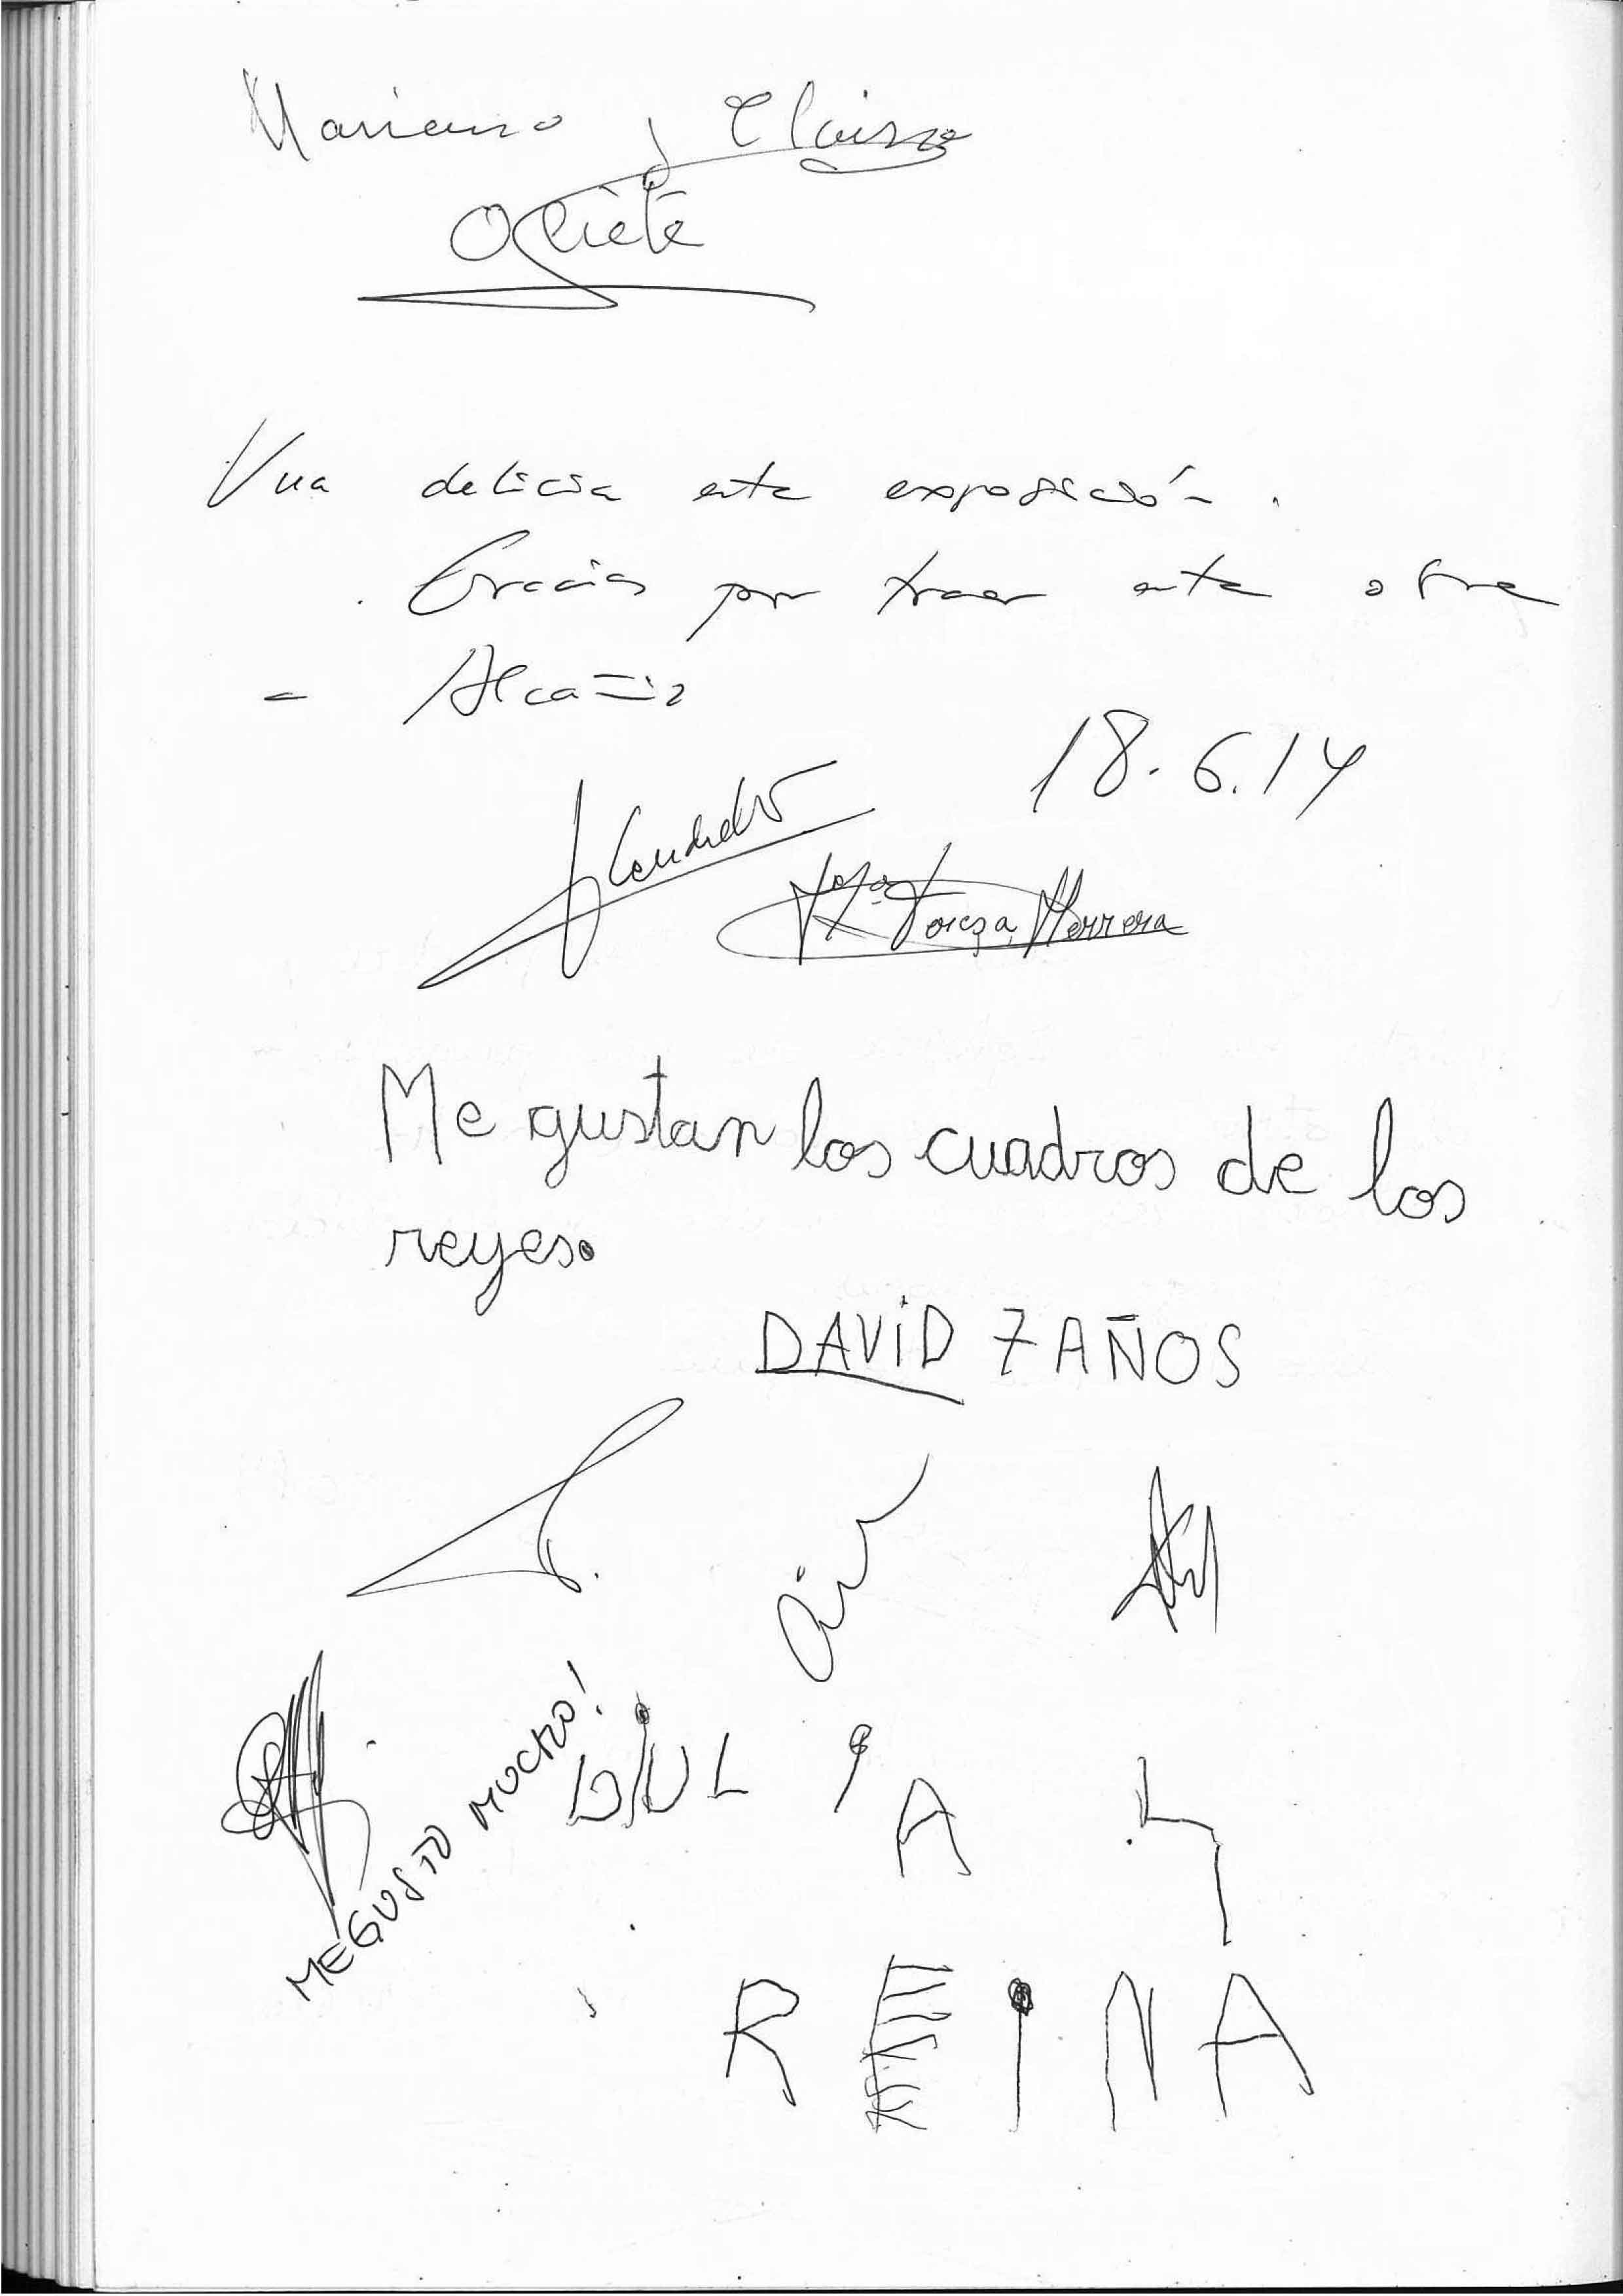 Mariano y Eloisa
Oliete
Una delicia esta exposición.
Gracias por traer esta obra
a Alcañiz
18.6.14
Mª Teresa Herrera
Me gustan los cuadros de los
reyes.
DAViD 7 AÑOS
ME GUSTO MUCHO!
JULiA 4
REiNA